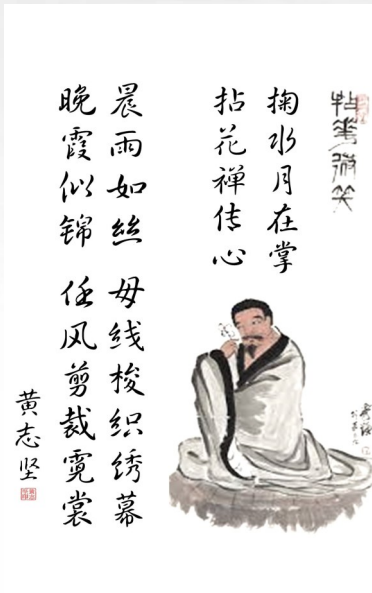 拈華微笑
掬水月在掌
拈花禅传心
晨雨如丝 毋线梭织绣幕
晚霞似锦 任风剪裁霓裳
黄志坚